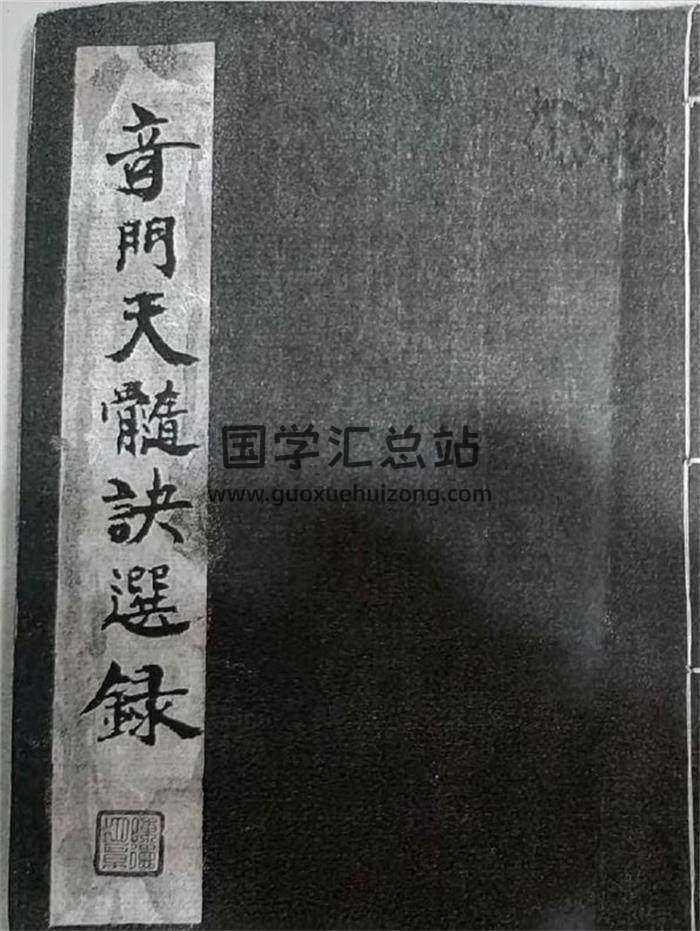 音門天髓訣選録
国学汇总站
www.guoxuehuizong.com